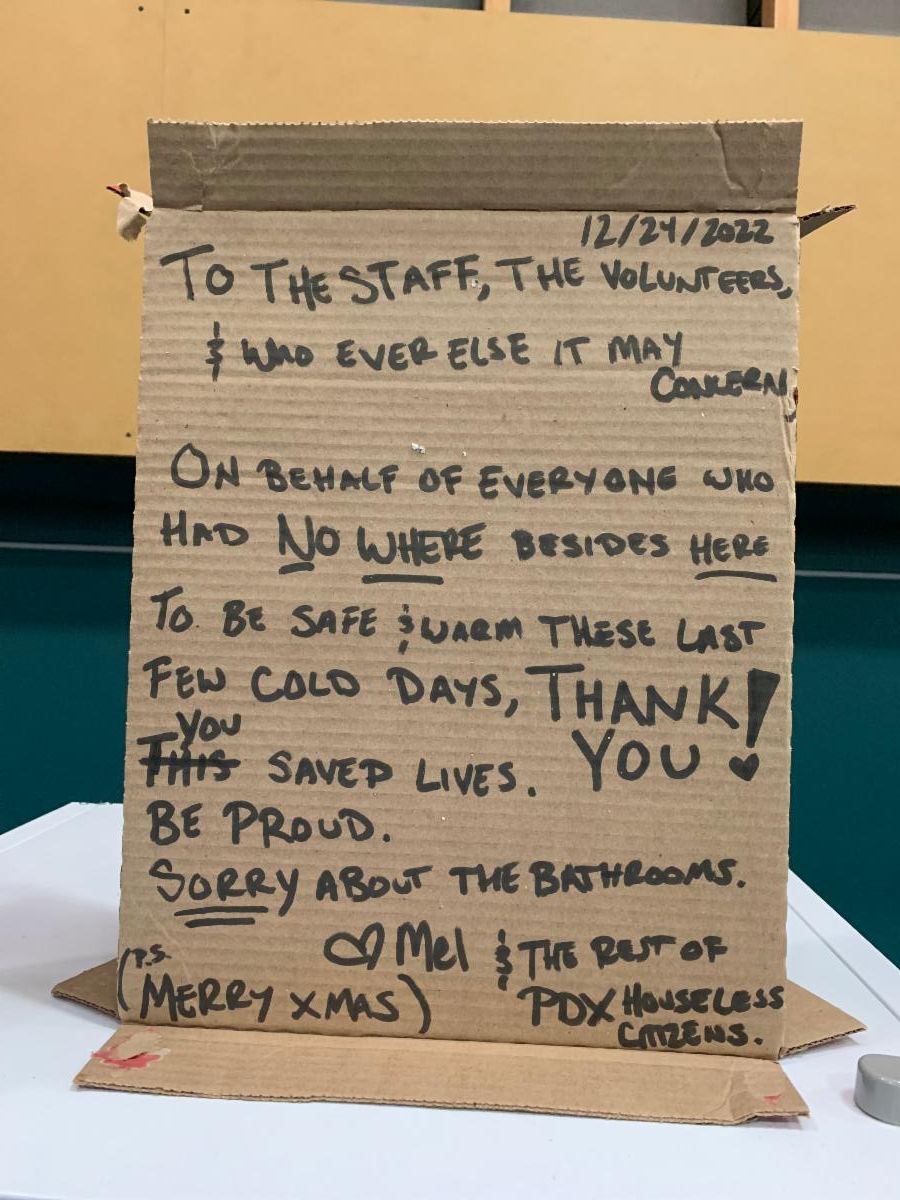 12/24/2022
TO THE STAFF, THE VOLUNTEERS,
& WHO EVER ELSE IT MAY
CONCERN,
ON BEHALF OF EVERYONE WHO
HAD NO WHERE BESIDES HERE
TO BE SAFE & WARM THESE LAST
FEW COLD DAYS, THANK
YOU!
YOU
THIS SAVED LIVES.
BE PROUD.
SORRY ABOUT THE BATHROOMS.
♡ Mel & THE REST OF
PDX HOUSELESS
CITIZENS.
(P.S.
MERRY XMAS)